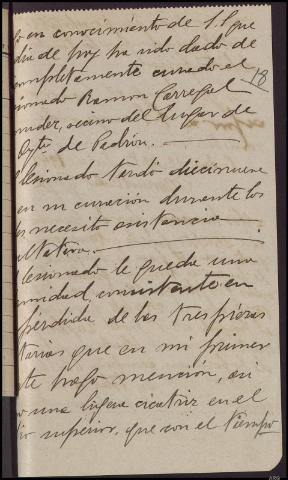 en conocimiento de S.S. que
dia de hoy ha sido dado de
completamente curado el
18
Ramon Carregal
vecino del lugar de
Ayto de Padrón.
lesionado tardó diecinueve
en su curación durante los
necesito asistencia
lesionado le queda una
consistente en
pérdida de las tres piezas
que en mi primer
hago mención, asi
una ligera cicatriz en el
superior, que con el tiempo